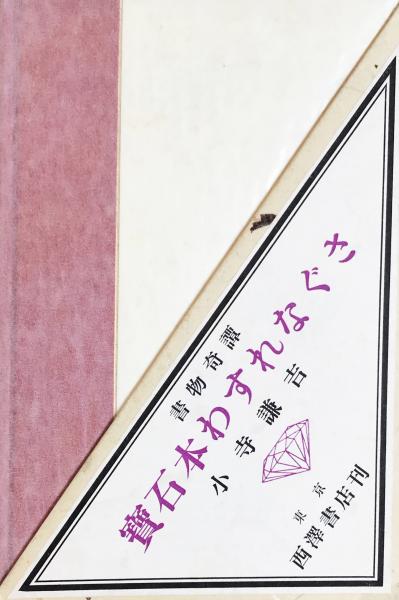 書物奇譚
寶石本わすれなぐさ
小寺謙吉
東京
西澤書店刊